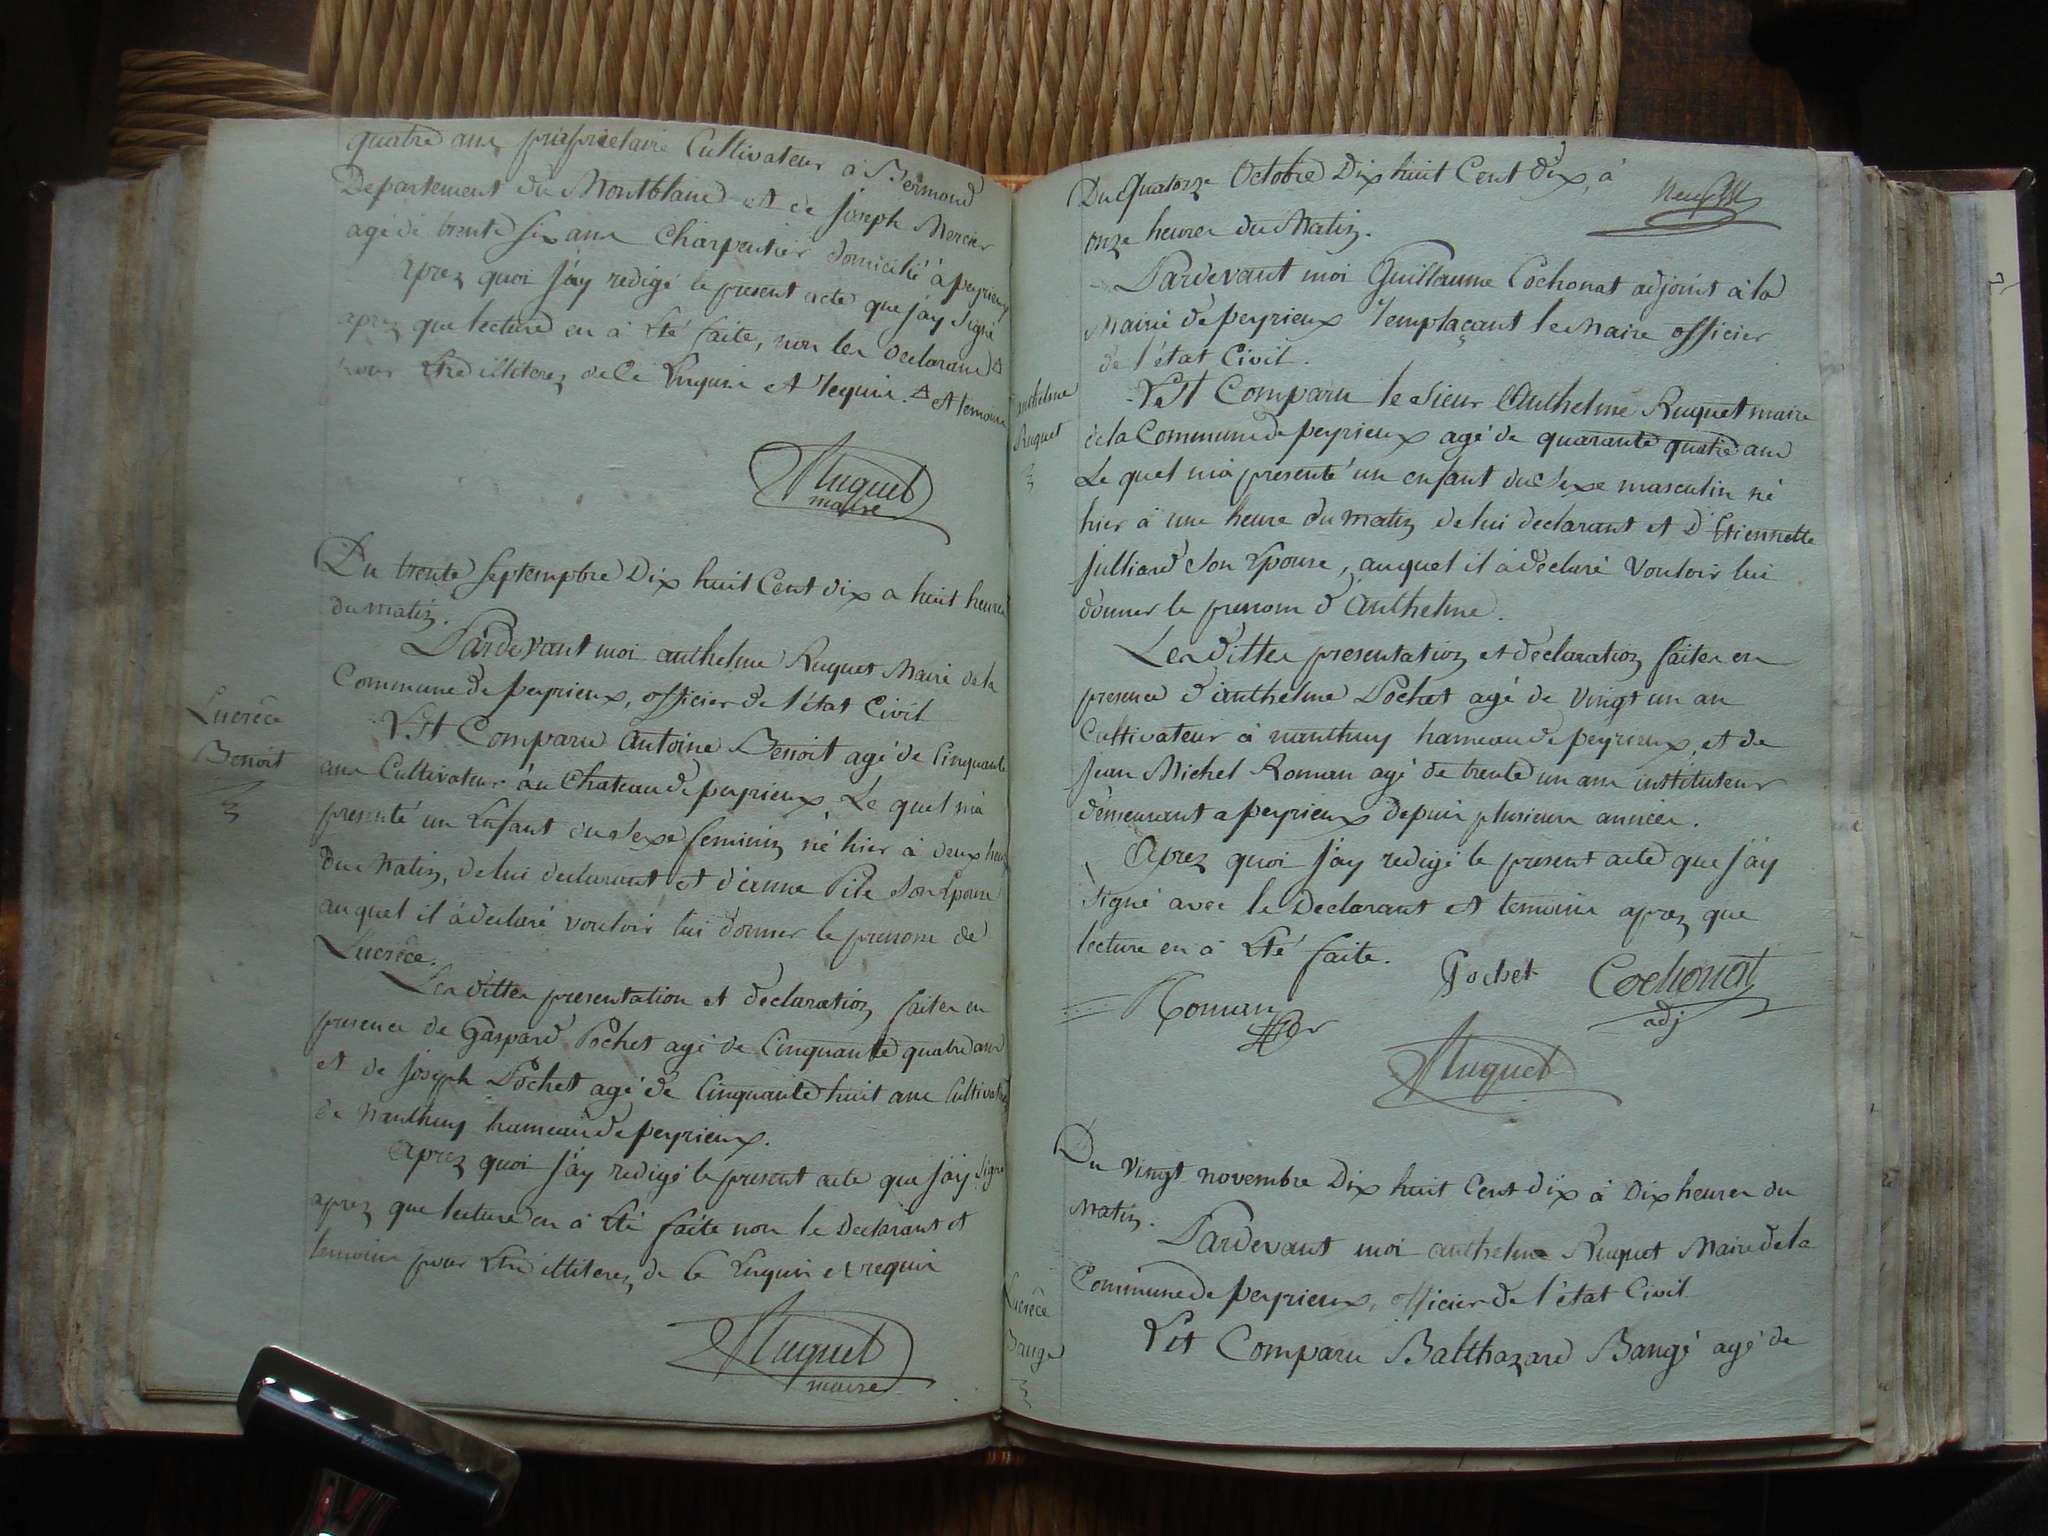 quatre ans propriétaire Cultivateur à Bermond
Departement du Montblanc et de joseph Mercier
agé de trente six ans Charpentier domicilié à peyrieux
aprez quoi j'ay redigé le present acte que j'ay signé
aprez que lecture en à Eté faite, non les declarans Δ
pour Etre illiterez de Ce Enquis et requis. Δ et temoins
Ruquet
maire
Lucrèce
Benoit
Du trente septempbre Dix huit Cent dix a huit heures
du matin.
Pardevant moi anthelme Ruquet Maire de la
Commune de peyrieux, officier de l'état Civil
Est Comparu Antoine Benoit agé de Cinquante
ans Cultivateur au Chateau de peyrieux Le quel m'à
presenté un Enfant du sexe feminin né hier à deux heures
du Matin, de lui declarant et d'anne Pile son Epouse
auquel il à declaré vouloir lui donner le prenom de
Lucrèce.
Les dittes presentation et declaration faites en
presence de Gaspard Pochet agé de Cinquante quatre ans
et de joseph Pochet agé de Cinquante huit ans Cultivateurs
de Nanthuy hameau de peyrieux.
Aprez quoi j'ay redigé le present acte que j'ay signé
aprez que lecture en à Eté faite non le Declarant et
temoins pour Etre illiterez de Ce Enquis et requis
Ruquet
maire
Du quatorze Octobre Dix huit Cent dix, à
onze heures du Matin.
Pardevant moi Guillaume Cochonat adjoint à la
Mairie de peyrieux remplaçant le Maire officier
de l'état Civil.
anthelme
Ruquet
Est Comparu le sieur Anthelme Ruquet maire
de la Commune de peyrieux agé de quarante quatre ans
Le quel m'à presenté un enfant du sexe masculin né
hier à une heure du matin de lui declarant et d'Etiennette
julliard son Epouse, auquel il à declaré vouloir lui
donner le prenom d'Anthelme.
Les dittes presentation et declaration faites en
presence d'anthelme Pochet agé de vingt un an
Cultivateur à nanthuy hameau de peyrieux, et de
jean Michel Roman agé de trente un ans instituteur
demeurant a peyrieux depuis plusieurs années.
Aprez quoi j'ay redigé le present acte que j'ay
signé avec le Declarant et temoins aprez que
lecture en à Eté faite.
Roman
Pochet
Cochonat
adj
Ruquet
Du vingt novembre Dix huit Cent dix à Dix heures du
Matin.
Pardevant moi anthelme Ruquet Maire de la
Commune de peyrieux, officier de l'état Civil
Lucrèce
Baugé
Est Comparu Balthazard Baugé agé de